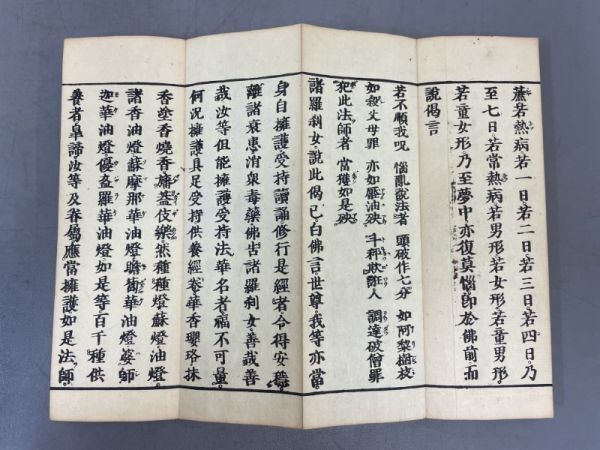 蔗若熱病若一日若二日若三日若四日乃
至七日若常熱病若男形若女形若童男形
若童女形乃至夢中亦復莫惱卽於佛前而
說偈言
若不順我呪　惱亂說法者　頭破作七分　如阿梨樹枝
如殺父母罪　亦如壓油殃　斗秤欺誑人　調達破僧罪
犯此法師者　當獲如是殃
諸羅刹女說此偈已白佛言世尊我等亦當
身自擁護受持讀誦修行是經者令得安穩
離諸衰患消衆毒藥佛告諸羅刹女善哉善
哉汝等但能擁護受持法華名者福不可量
何況擁護具足受持供養經卷華香瓔珞抹
香塗香燒香旛蓋伎樂然種種燈蘇燈油燈
諸香油燈蘇摩那華油燈瞻蔔華油燈婆師
迦華油燈優盋羅華油燈如是等百千種供
養者皐諦汝等及眷屬應當擁護如是法師